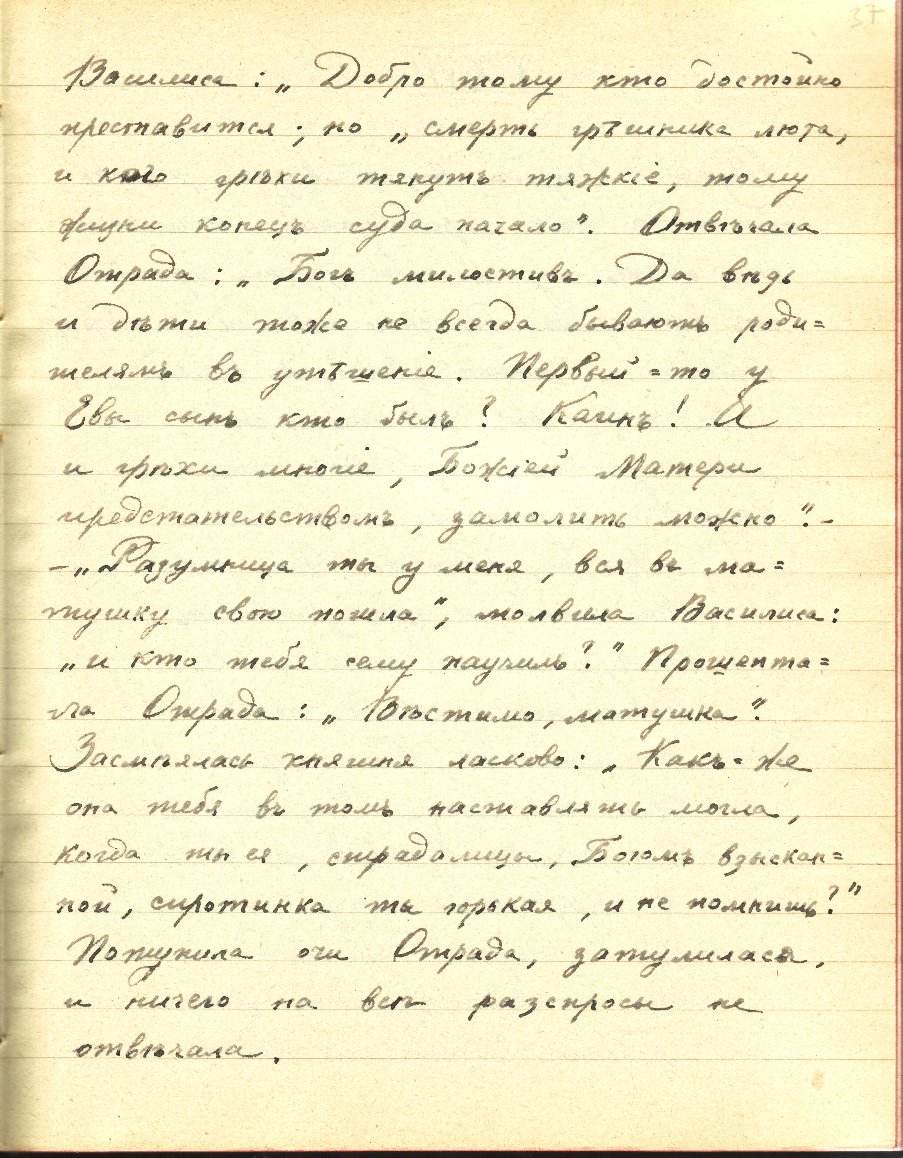 37
Василиса: „Добро тому кто достойно
преставится; но „смерть грѣшника люта,
и кого грѣхи тянутъ тяжкіе, тому
жизни конецъ суда начало“. Отвѣчала
Отрада: „Богъ милостивъ. Да вѣдь
и дѣти тоже не всегда бываютъ роди=
телямъ въ утѣшеніе. Первый=то у
Евы сынъ кто былъ? Каинъ! А
и грѣхи многіе, Божіей Матери
предстательствомъ, замолить можно“.–
–„Разумница ты у меня, вся въ ма=
тушку свою пошла“, молвила Василиса:
„и кто тебя сему научилъ?“ Прошепта=
ла Отрада: „Вѣстимо, матушка“.
Засмѣялась княгиня ласково: „Какъ=же
она тебя въ томъ наставлять могла,
когда ты ея, страдалицы, Богомъ взыскан=
ной, сиротинка ты горькая, и не помнишь?“
Потупила очи Отрада, затуmилась,
и ничего на всѣ разспросы не
отвѣчала.